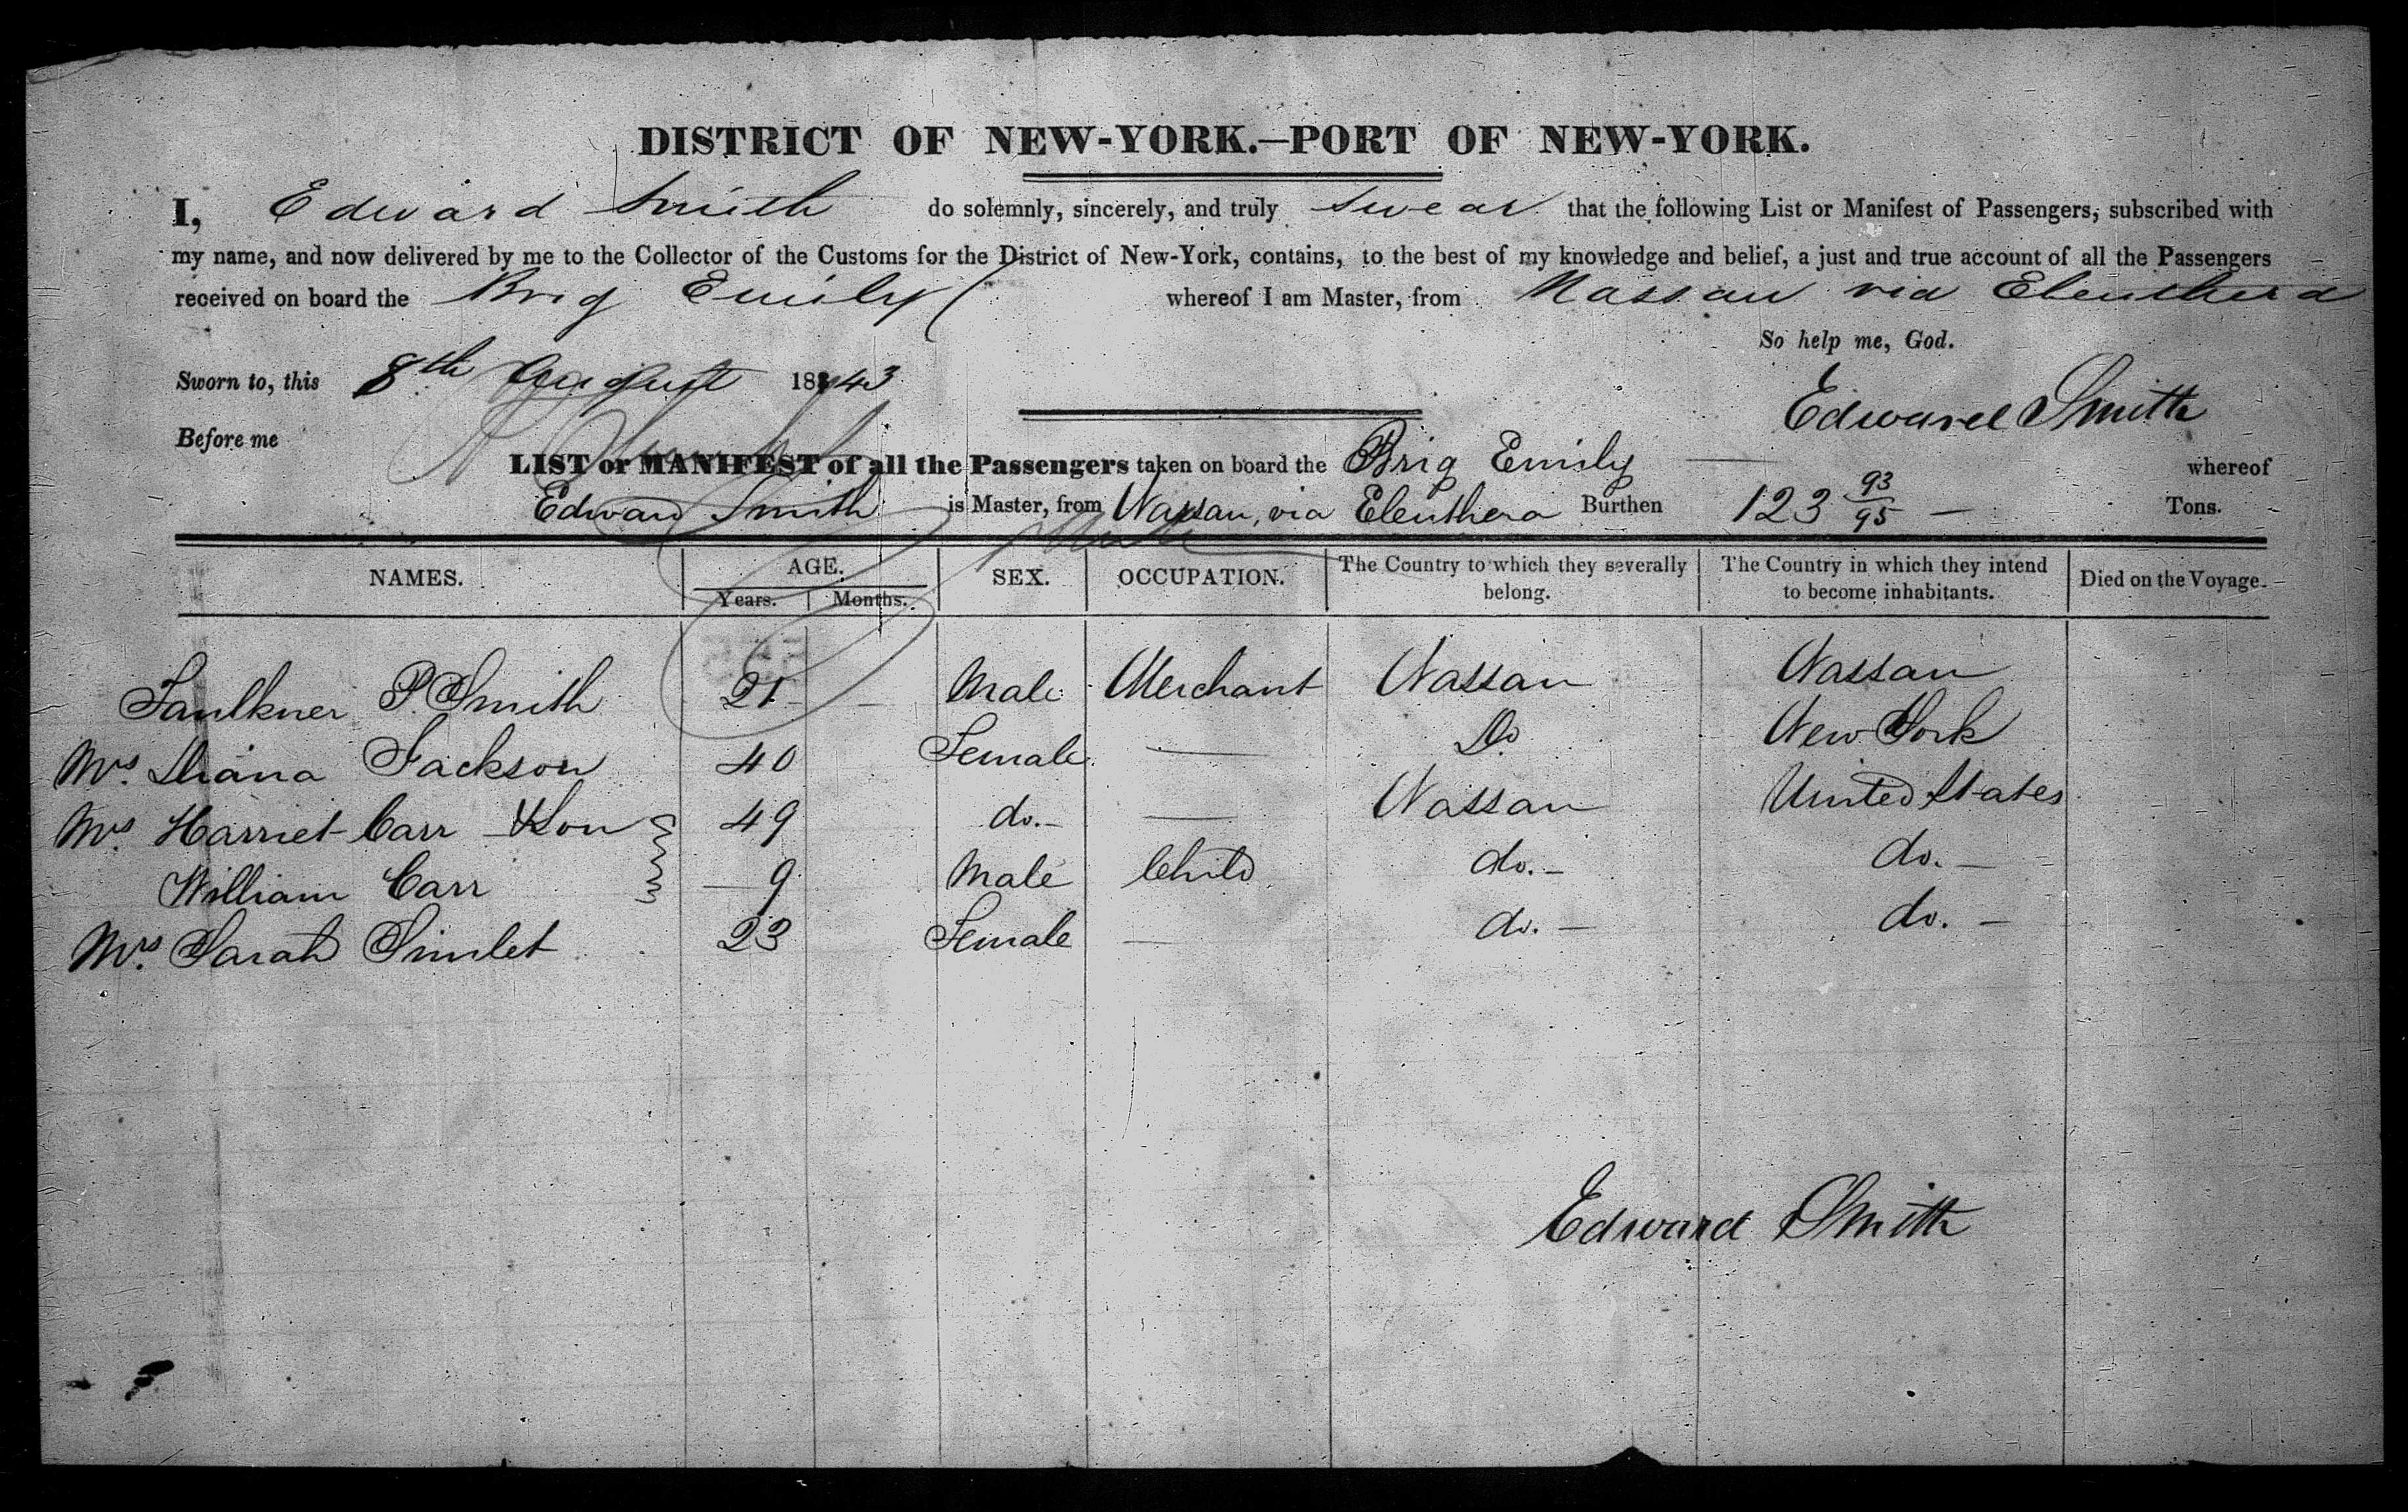 DISTRICT OF NEW-YORK.—PORT OF NEW-YORK.
I, Edward Smith do solemnly, sincerely, and truly swear that the following List or Manifest of Passengers, subscribed with
my name, and now delivered by me to the Collector of the Customs for the District of New-York, contains, to the best of my knowledge and belief, a just and true account of all the Passengers
received on board the Brig Emily whereof I am Master, from Nassau via Eleuthera
So help me, God.
Sworn to, this 8th August 1843
Edward Smith
Before me
LIST or MANIFEST of all the Passengers taken on board the Brig Emily whereof
Edward Smith is Master, from Nassau, via Eleuthera Burthen 123 93/95 — Tons.
NAMES. AGE. Years. Months. SEX. OCCUPATION. The Country to which they severally belong. The Country in which they intend to become inhabitants. Died on the Voyage.
Faulkner P. Smith 21 — Male Merchant Nassau Nassau
Mrs. Diana Jackson 40 Female — Do New York
Mrs. Harriet Carr & Son 49 do. — Nassau United States
William Carr 9 Male Child do. — do. —
Mrs. Sarah Simlet 23 Female — do. — do. —
Edward Smith